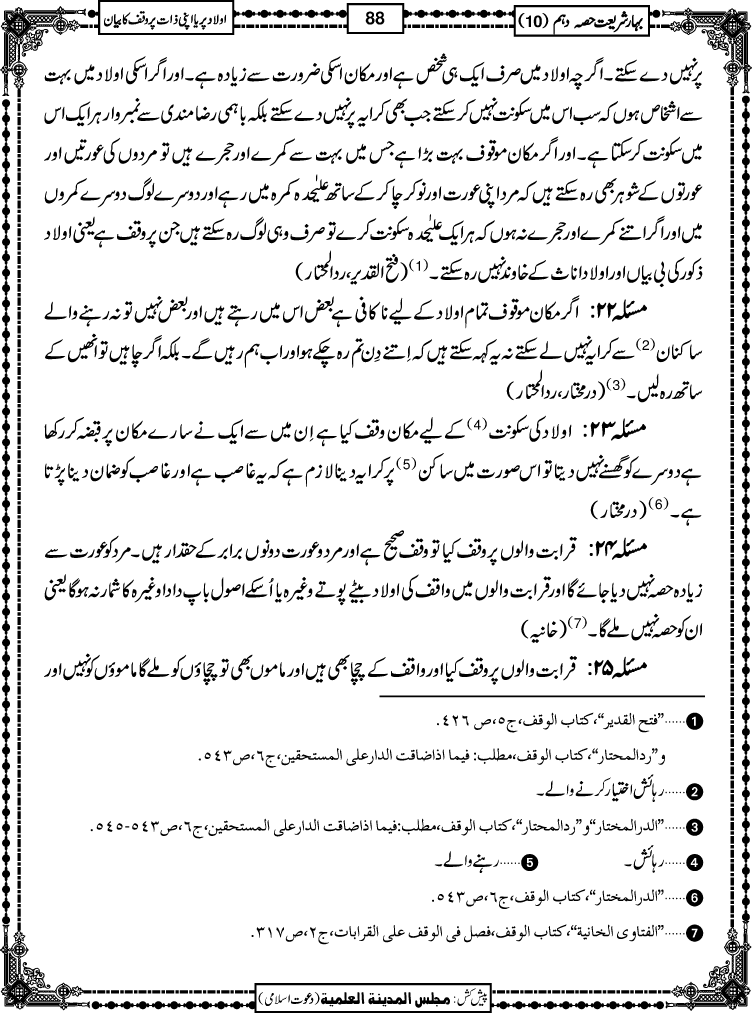 بہارِ شریعت حصہ دہم (10)
88
اولاد پر یا اپنی ذات پر وقف کا بیان
پر نہیں دے سکتے۔ اگرچہ اولاد میں صرف ایک ہی شخص ہے اور مکان اسکی ضرورت سے زیادہ ہے۔ اور اگر اسکی اولاد میں بہت
سے اشخاص ہوں کہ سب اس میں سکونت نہیں کرسکتے جب بھی کرایہ پر نہیں دے سکتے بلکہ باہمی رضامندی سے نمبروار ہر ایک اس
میں سکونت کرسکتا ہے۔ اور اگر مکان موقوف بہت بڑا ہے جس میں بہت سے کمرے اور حجرے ہیں تو مردوں کی عورتیں اور
عورتوں کے شوہر بھی رہ سکتے ہیں کہ مرد اپنی عورت اور نوکر چاکر کے ساتھ علیٰحدہ کمرہ میں رہے اور دوسرے لوگ دوسرے کمروں
میں اور اگر اتنے کمرے اور حجرے نہ ہوں کہ ہر ایک علیٰحدہ سکونت کرے تو صرف وہی لوگ رہ سکتے ہیں جن پر وقف ہے یعنی اولاد
ذکور کی بی بیاں اور اولاد اناث کے خاوند نہیں رہ سکتے۔(1) (فتح القدیر، ردالمحتار)
مسئلہ ۲۲: اگر مکان موقوف تمام اولاد کے لیے ناکافی ہے بعض اس میں رہتے ہیں اور بعض نہیں تو نہ رہنے والے
ساکنان(2) سے کرایہ نہیں لے سکتے نہ یہ کہہ سکتے ہیں کہ اِتنے دِن تم رہ چکے ہو اور اب ہم رہیں گے۔ بلکہ اگر چاہیں تو انھیں کے
ساتھ رہ لیں۔(3) (درمختار، ردالمحتار)
مسئلہ ۲۳: اولاد کی سکونت(4) کے لیے مکان وقف کیا ہے اِن میں سے ایک نے سارے مکان پر قبضہ کر رکھا
ہے دوسرے کو گھسنے نہیں دیتا تو اس صورت میں ساکن(5) پر کرایہ دینا لازم ہے کہ یہ غاصب ہے اور غاصب کو ضمان دینا پڑتا
ہے۔(6) (درمختار)
مسئلہ ۲۴: قرابت والوں پر وقف کیا تو وقف صحیح ہے اور مرد و عورت دونوں برابر کے حقدار ہیں۔ مرد کو عورت سے
زیادہ حصہ نہیں دیا جائے گا اور قرابت والوں میں واقف کی اولاد بیٹے پوتے وغیرہ یا اُسکے اصول باپ دادا وغیرہ کا شمار نہ ہوگا یعنی
ان کو حصہ نہیں ملے گا۔(7) (خانیہ)
مسئلہ ۲۵: قرابت والوں پر وقف کیا اور واقف کے چچا بھی ہیں اور ماموں بھی تو چچاؤں کو ملے گا ماموؤں کو نہیں اور
1......”فتح القدیر“،کتاب الوقف،ج٥،ص ٤٢٦.
و ”ردالمحتار“،کتاب الوقف،مطلب: فیما اذاضاقت الدارعلی المستحقین،ج٦،ص٥٤٣.
2......رہائش اختیار کرنے والے۔
3......”الدرالمختار“و”ردالمحتار“،کتاب الوقف،مطلب:فیما اذاضاقت الدارعلی المستحقین،ج٦،ص٥٤٣-٥٤٥.
4......رہائش۔ 5......رہنے والے۔
6......”الدرالمختار“،کتاب الوقف،ج٦،ص٥٤٣.
7......”الفتاوی الخانیة“،کتاب الوقف،فصل فی الوقف علی القرابات،ج٢،ص٣١٧.
پیش کش: مجلس المدینة العلمیة (دعوت اسلامی)